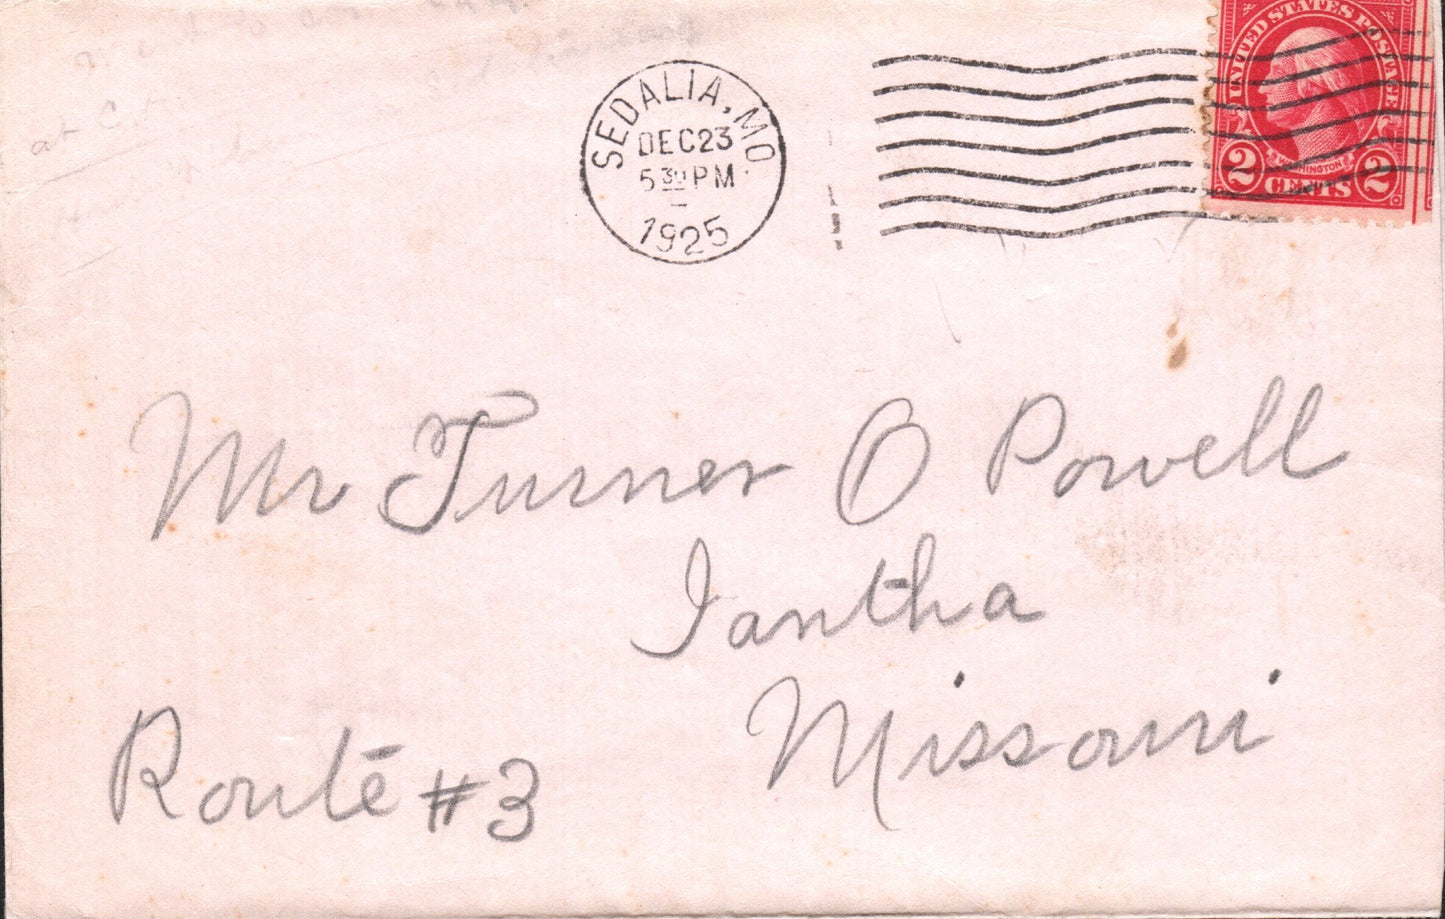 SEDALIA, MO.
DEC 23
5 30 PM
1925
UNITED STATES POSTAGE
WASHINGTON
2 CENTS 2
Mr Turner O Powell
Iantha
Missouri
Route #3